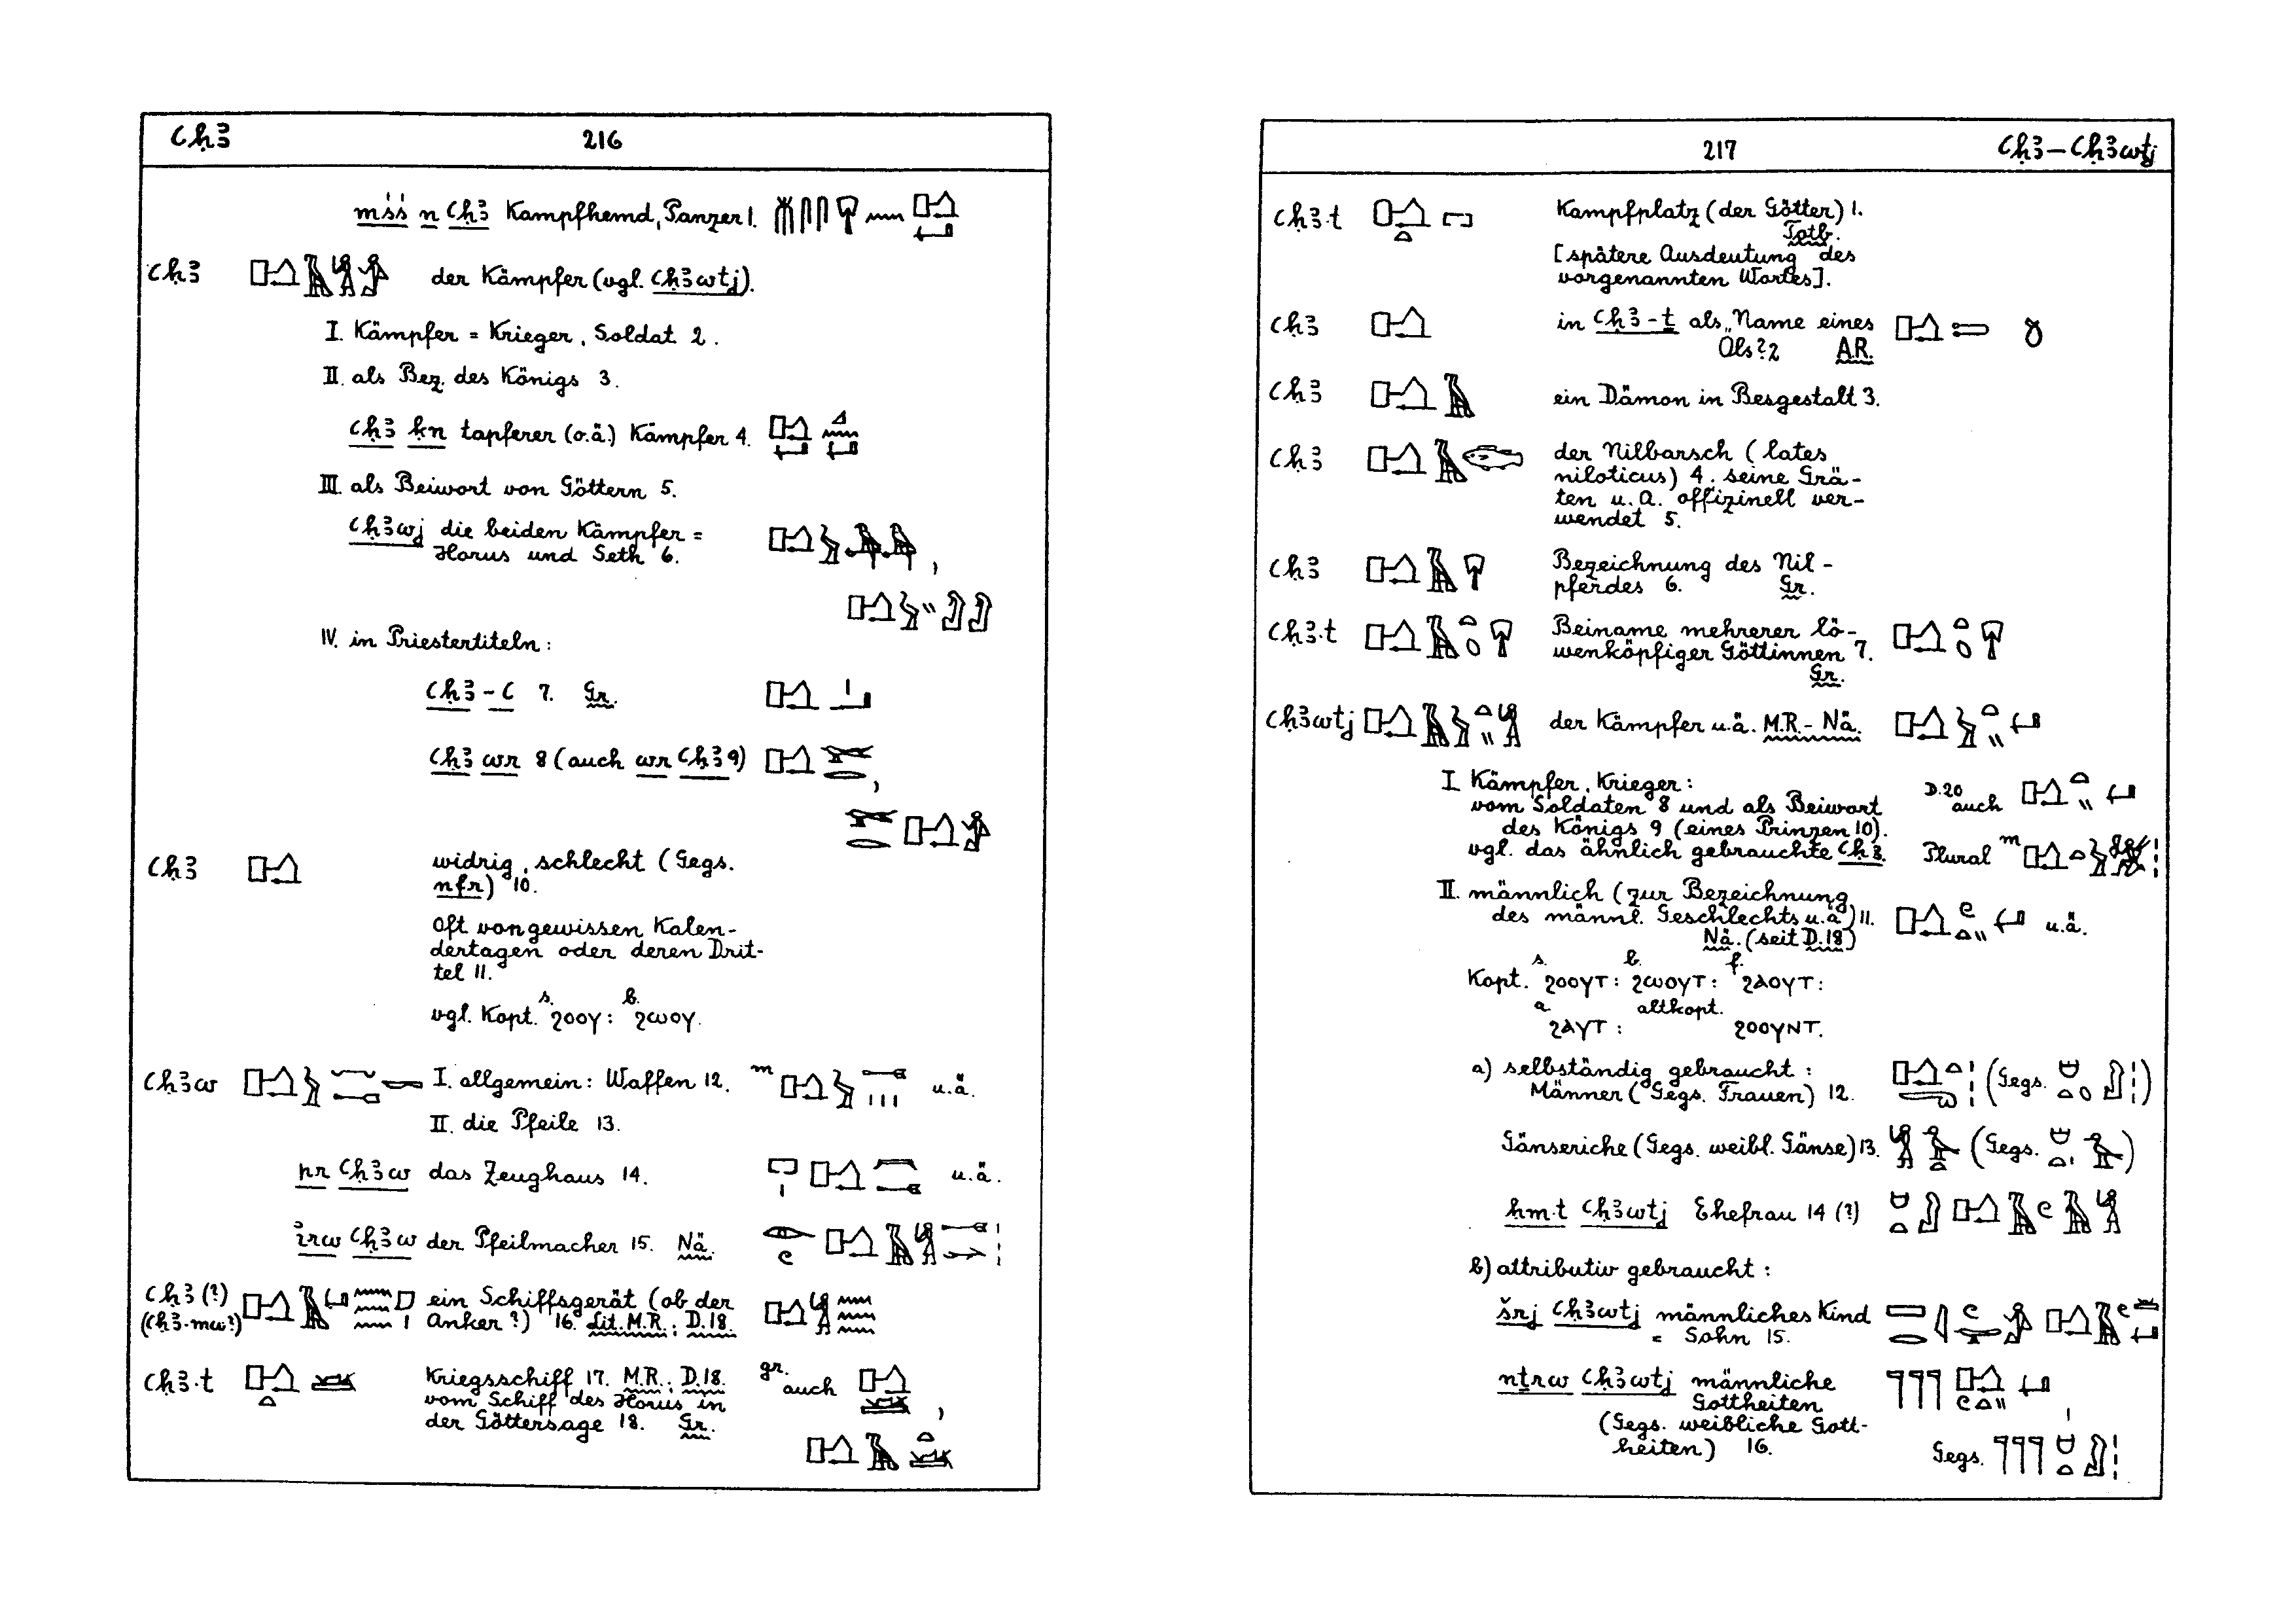 ꜥḥꜣ 216
mśś n ꜥḥꜣ Kampfhemd, Panzer 1.
ꜥḥꜣ der Kämpfer (vgl. ꜥḥꜣwtj).
I. Kämpfer = Krieger, Soldat 2.
II. als Bez. des Königs 3.
ꜥḥꜣ ḳn tapferer (o.ä.) Kämpfer 4.
III. als Beiwort von Göttern 5.
ꜥḥꜣwj die beiden Kämpfer =
Horus und Seth 6.
IV. in Priestertiteln:
ꜥḥꜣ-ꜥ 7. Gr.
ꜥḥꜣ wr 8 (auch wr ꜥḥꜣ 9)
ꜥḥꜣ widrig, schlecht (Gegs.
nfr) 10.
Oft von gewissen Kalen-
dertagen oder deren Drit-
tel 11.
s. b.
vgl. Kopt. ϩⲟⲟⲩ: ϩⲱⲟⲩ.
ꜥḥꜣw I. allgemein: Waffen 12. m u.ä.
II. die Pfeile 13.
pr ꜥḥꜣw das Zeughaus 14. u.ä.
irw ꜥḥꜣw der Pfeilmacher 15. Nä.
ꜥḥꜣ (?) ein Schiffsgerät (ob der
(ꜥḥꜣ-mw?) Anker?) 16. Lit. M.R.; D.18.
ꜥḥꜣ·t Kriegsschiff 17. M.R.; D.18. gr. auch
vom Schiff des Horus in
der Göttersage 18. Gr.
217 ꜥḥꜣ—ꜥḥꜣwtj
ꜥḥꜣ·t Kampfplatz (der Götter) 1.
Totb.
[spätere Ausdeutung des
vorgenannten Wortes].
ꜥḥꜣ in ꜥḥꜣ-ṯ als „Name eines
Öls? 2 A.R.
ꜥḥꜣ ein Dämon in Besgestalt 3.
ꜥḥꜣ der Nilbarsch (lates
niloticus) 4. seine Grä-
ten u. A. offizinell ver-
wendet 5.
ꜥḥꜣ Bezeichnung des Nil-
pferdes 6. Gr.
ꜥḥꜣ·t Beiname mehrerer lö-
wenköpfiger Göttinnen 7.
Gr.
ꜥḥꜣwtj der Kämpfer u.ä. M.R.-Nä.
I. Kämpfer, Krieger:
vom Soldaten 8 und als Beiwort D.20 auch
des Königs 9 (eines Prinzen 10).
vgl. das ähnlich gebrauchte ꜥḥꜣ. Plural m
II. männlich (zur Bezeichnung
des männl. Geschlechts u.ä.) 11. u.ä.
Nä. (seit D.18)
s. b. f.
Kopt. ϩⲟⲟⲩⲧ: ϩⲱⲟⲩⲧ: ϩⲁⲟⲩⲧ:
a. altkopt.
ϩⲁⲩⲧ: ϩⲟⲟⲩⲛⲧ.
a) selbständig gebraucht:
Männer (Gegs. Frauen) 12. (Gegs. )
Gänseriche (Gegs. weibl. Gänse) 13. (Gegs. )
ḥm·t ꜥḥꜣwtj Ehefrau 14 (?)
b) attributiv gebraucht:
šrj ꜥḥꜣwtj männliches Kind
= Sohn 15.
nṯrw ꜥḥꜣwtj männliche
Gottheiten
(Gegs. weibliche Gott-
heiten) 16. Gegs.